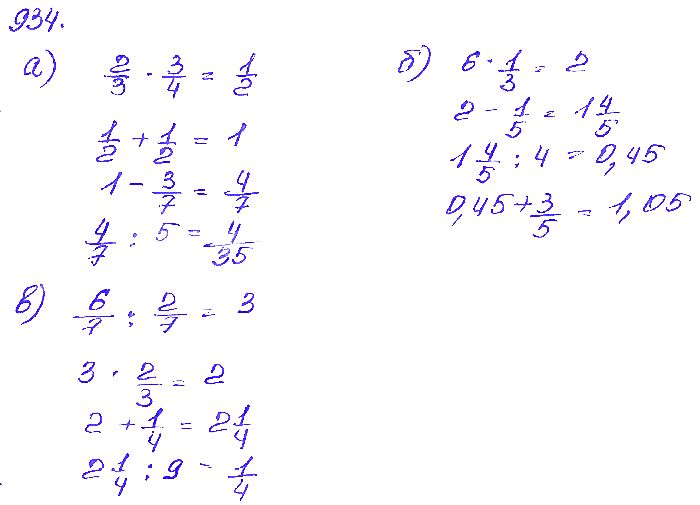 934.
а) 2/3 · 3/4 = 1/2
1/2 + 1/2 = 1
1 - 3/7 = 4/7
4/7 : 5 = 4/35
б) 6 · 1/3 = 2
2 - 1/5 = 1 4/5
1 4/5 : 4 = 0,45
0,45 + 3/5 = 1,05
в) 6/7 : 2/7 = 3
3 · 2/3 = 2
2 + 1/4 = 2 1/4
2 1/4 : 9 - 1/4